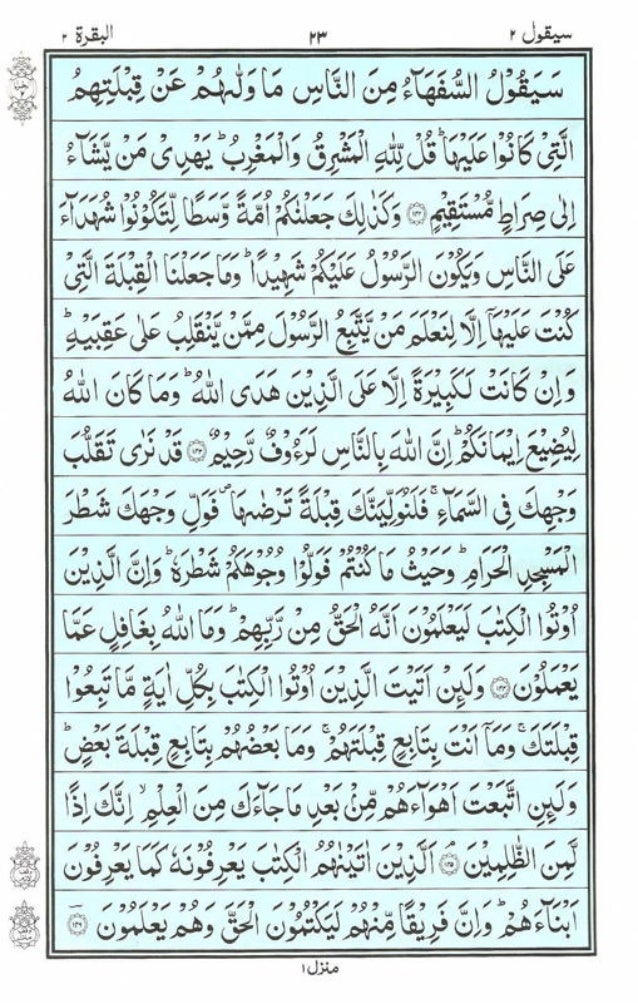 سيقول ٢
٢٣
البقرة ٢
سَيَقُوْلُ السُّفَهَآءُ مِنَ النَّاسِ مَا وَلّٰىهُمْ عَنْ قِبْلَتِهِمُ
الَّتِیْ كَانُوْا عَلَيْهَا ؕ قُلْ لِّلّٰهِ الْمَشْرِقُ وَالْمَغْرِبُ ؕ يَهْدِیْ مَنْ يَّشَآءُ
اِلٰی صِرَاطٍ مُّسْتَقِيْمٍ ﴿۱۴۲﴾ وَكَذٰلِكَ جَعَلْنٰكُمْ اُمَّةً وَّسَطًا لِّتَكُوْنُوْا شُهَدَآءَ
عَلَی النَّاسِ وَيَكُوْنَ الرَّسُوْلُ عَلَيْكُمْ شَهِيْدًا ؕ وَمَا جَعَلْنَا الْقِبْلَةَ الَّتِیْ
كُنْتَ عَلَيْهَاۤ اِلَّا لِنَعْلَمَ مَنْ يَّتَّبِعُ الرَّسُوْلَ مِمَّنْ يَّنْقَلِبُ عَلٰی عَقِبَيْهِ ؕ
وَاِنْ كَانَتْ لَكَبِيْرَةً اِلَّا عَلَی الَّذِيْنَ هَدَی اللّٰهُ ؕ وَمَا كَانَ اللّٰهُ
لِيُضِيْعَ اِيْمَانَكُمْ ؕ اِنَّ اللّٰهَ بِالنَّاسِ لَرَءُوْفٌ رَّحِيْمٌ ﴿۱۴۳﴾ قَدْ نَرٰی تَقَلُّبَ
وَجْهِكَ فِی السَّمَآءِ ۚ فَلَنُوَلِّيَنَّكَ قِبْلَةً تَرْضٰىهَا ۪ فَوَلِّ وَجْهَكَ شَطْرَ
الْمَسْجِدِ الْحَرَامِ ؕ وَحَيْثُ مَا كُنْتُمْ فَوَلُّوْا وُجُوْهَكُمْ شَطْرَهٗ ؕ وَاِنَّ الَّذِيْنَ
اُوْتُوا الْكِتٰبَ لَيَعْلَمُوْنَ اَنَّهُ الْحَقُّ مِنْ رَّبِّهِمْ ؕ وَمَا اللّٰهُ بِغَافِلٍ عَمَّا
يَعْمَلُوْنَ ﴿۱۴۴﴾ وَلَئِنْ اَتَيْتَ الَّذِيْنَ اُوْتُوا الْكِتٰبَ بِكُلِّ اٰيَةٍ مَّا تَبِعُوْا
قِبْلَتَكَ ۚ وَمَاۤ اَنْتَ بِتَابِعٍ قِبْلَتَهُمْ ۚ وَمَا بَعْضُهُمْ بِتَابِعٍ قِبْلَةَ بَعْضٍ ؕ
وَلَئِنِ اتَّبَعْتَ اَهْوَآءَهُمْ مِّنْۢ بَعْدِ مَا جَآءَكَ مِنَ الْعِلْمِ ۙ اِنَّكَ اِذًا
لَّمِنَ الظّٰلِمِيْنَ ﴿۱۴۵﴾ اَلَّذِيْنَ اٰتَيْنٰهُمُ الْكِتٰبَ يَعْرِفُوْنَهٗ كَمَا يَعْرِفُوْنَ
اَبْنَآءَهُمْ ؕ وَاِنَّ فَرِيْقًا مِّنْهُمْ لَيَكْتُمُوْنَ الْحَقَّ وَهُمْ يَعْلَمُوْنَ ﴿۱۴۶﴾
منزل ۱